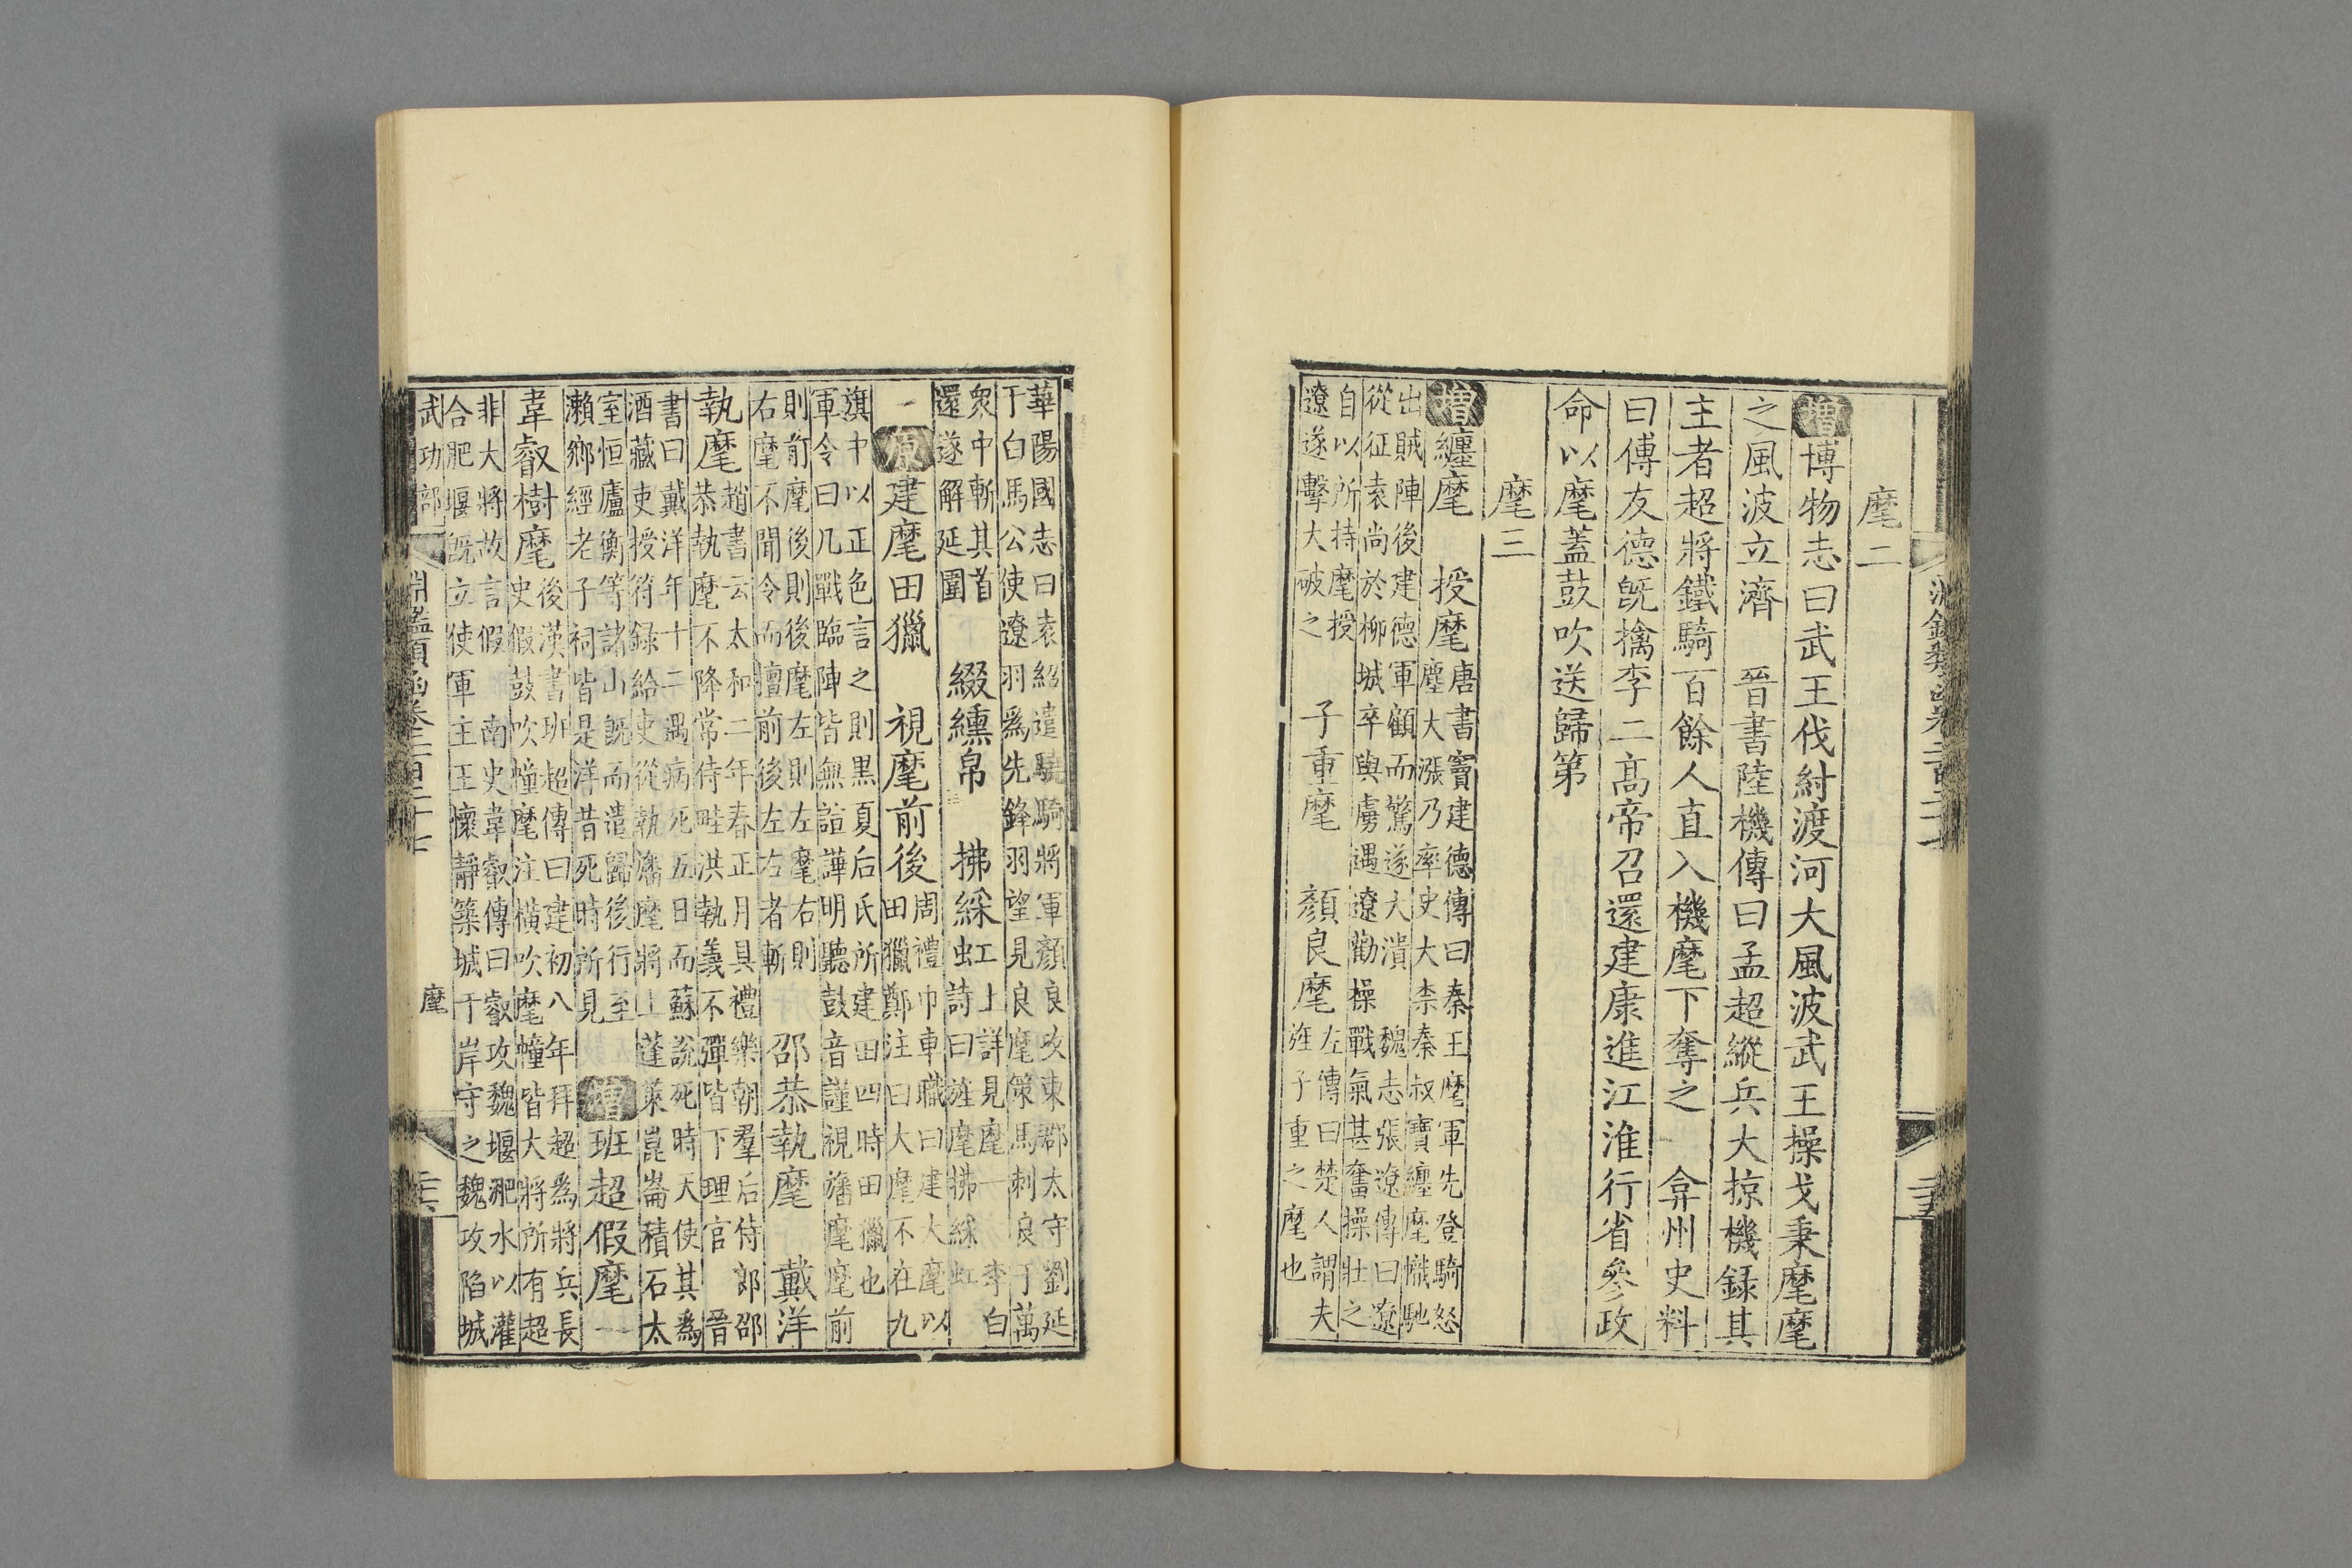 麾二
增博物志曰武王伐紂渡河大風波武王操戈秉麾麾
之風波立濟 晉書陸機傳曰孟超縱兵大掠機録其
主者超將鐵騎百餘人直入機麾下奪之 弇州史料
曰傅友德旣擒李二高帝召還建康進江淮行省參政
命以麾蓋鼓吹送歸第
麾三
增纏麾 授麾
唐書竇建德傳曰秦王麾軍先登騎怒
塵大漲乃率史大柰秦叔寶纏麾幟馳
出賊陣後建德軍顧而驚遂大潰 魏志張遼傳曰遼
從征袁尚於柳城卒與虜遇遼勸操戰氣甚奮操壯之
自以所持麾授
遼遂擊大破之
子重麾 顏良麾
左傳曰楚人謂夫
旌子重之麾也
華陽國志曰袁紹遣驍騎將軍顏良攻東郡太守劉延
于白馬公使遼羽爲先鋒羽望見良麾策馬刺良于萬
衆中斬其首
還遂解延圍
綴纁帛 拂綵虹
上詳見麾一 李白
詩曰旌麾拂綵虹
一原建麾田獵 視麾前後
周禮巾車職曰建大麾以
田獵鄭注曰大麾不在九
旗中以正色言之則黑夏后氏所建田四時田 獵也
軍令曰凡戰臨陣皆無諠譁明聽鼓音謹視旛麾麾前
則前麾後則後麾左則左麾右則
右麾不聞令而擅前後左右者斬
邵恭執麾 戴洋
執麾
趙書云太和二年春正月具禮樂朝羣后侍 郎邵
恭執麾不降常侍畦洪執義不彈皆下理官 晉
書曰戴洋年十二遇病死五日而蘇說死時天使其爲
酒藏吏授符録給吏從執旛麾將上蓬萊崑崙積石太
室恒廬衡等諸山旣而遣歸後行至
瀨鄉經老子祠皆是洋昔死時所見
增班超假麾一
韋叡樹麾
後漢書班超傳曰建初八年拜超爲將兵長
史假鼓吹幢麾注橫吹麾幢皆大將所有超
非大將故言假 南史韋叡傳曰叡攻魏堰淝水以灌
合肥堰旣立使軍主王懷靜築城于岸守之魏攻陷城
武功部
淵鑑類函卷二百二十七
麾